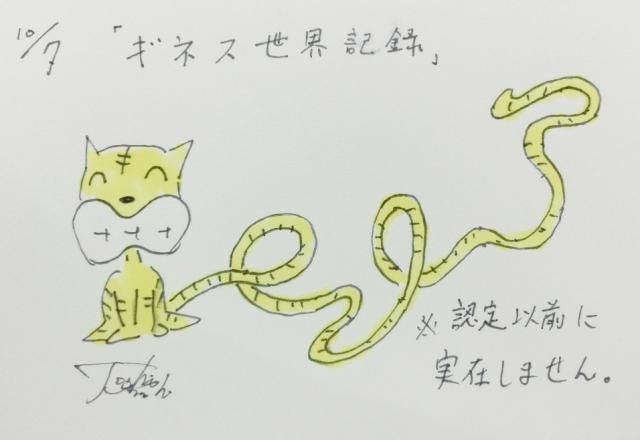 10/7 「ギネス世界記録」
※認定以前に
実在しません。